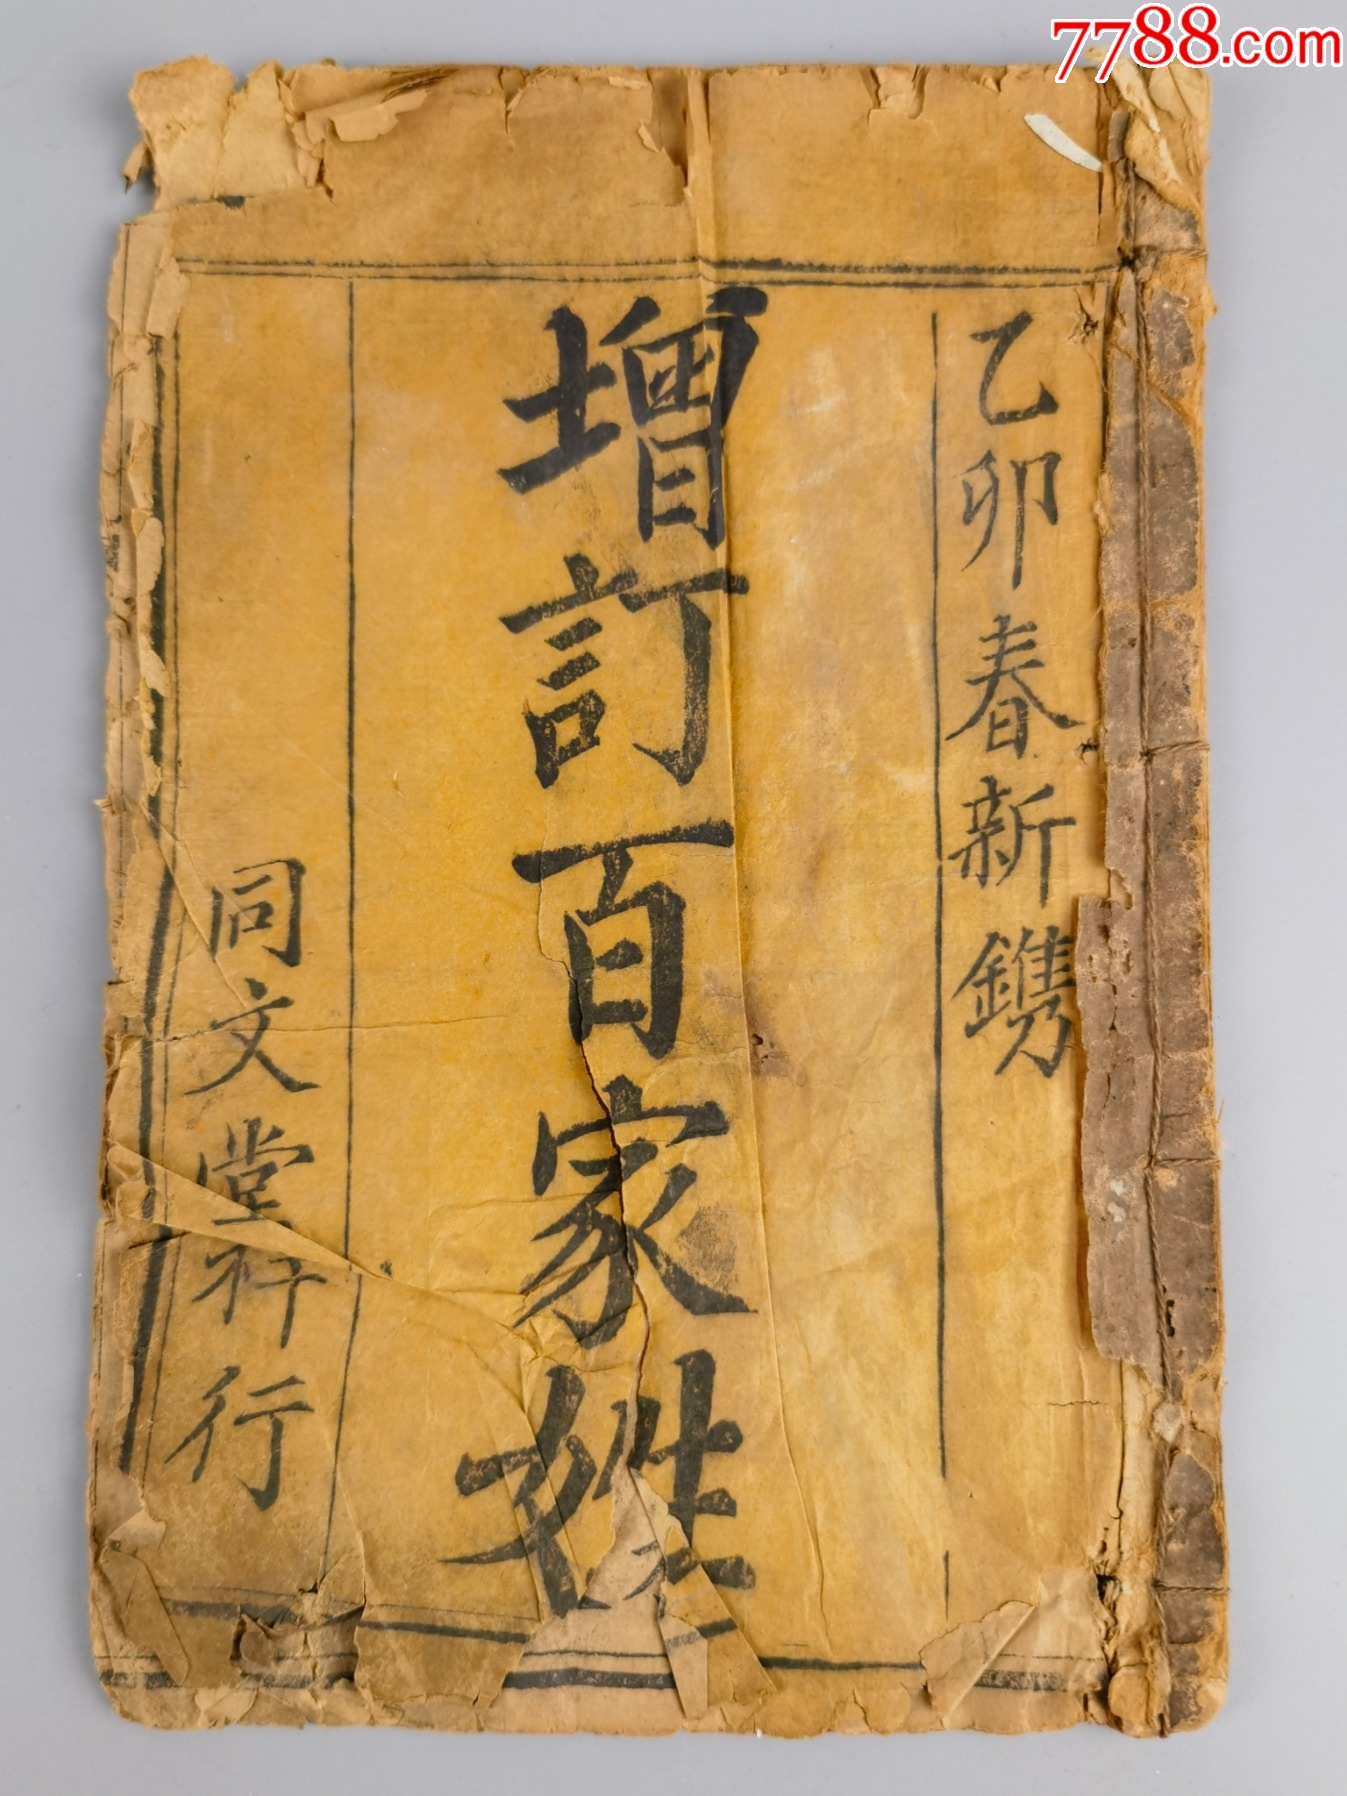 7788.com
乙卯春新鐫
增訂百家姓
同文堂梓行